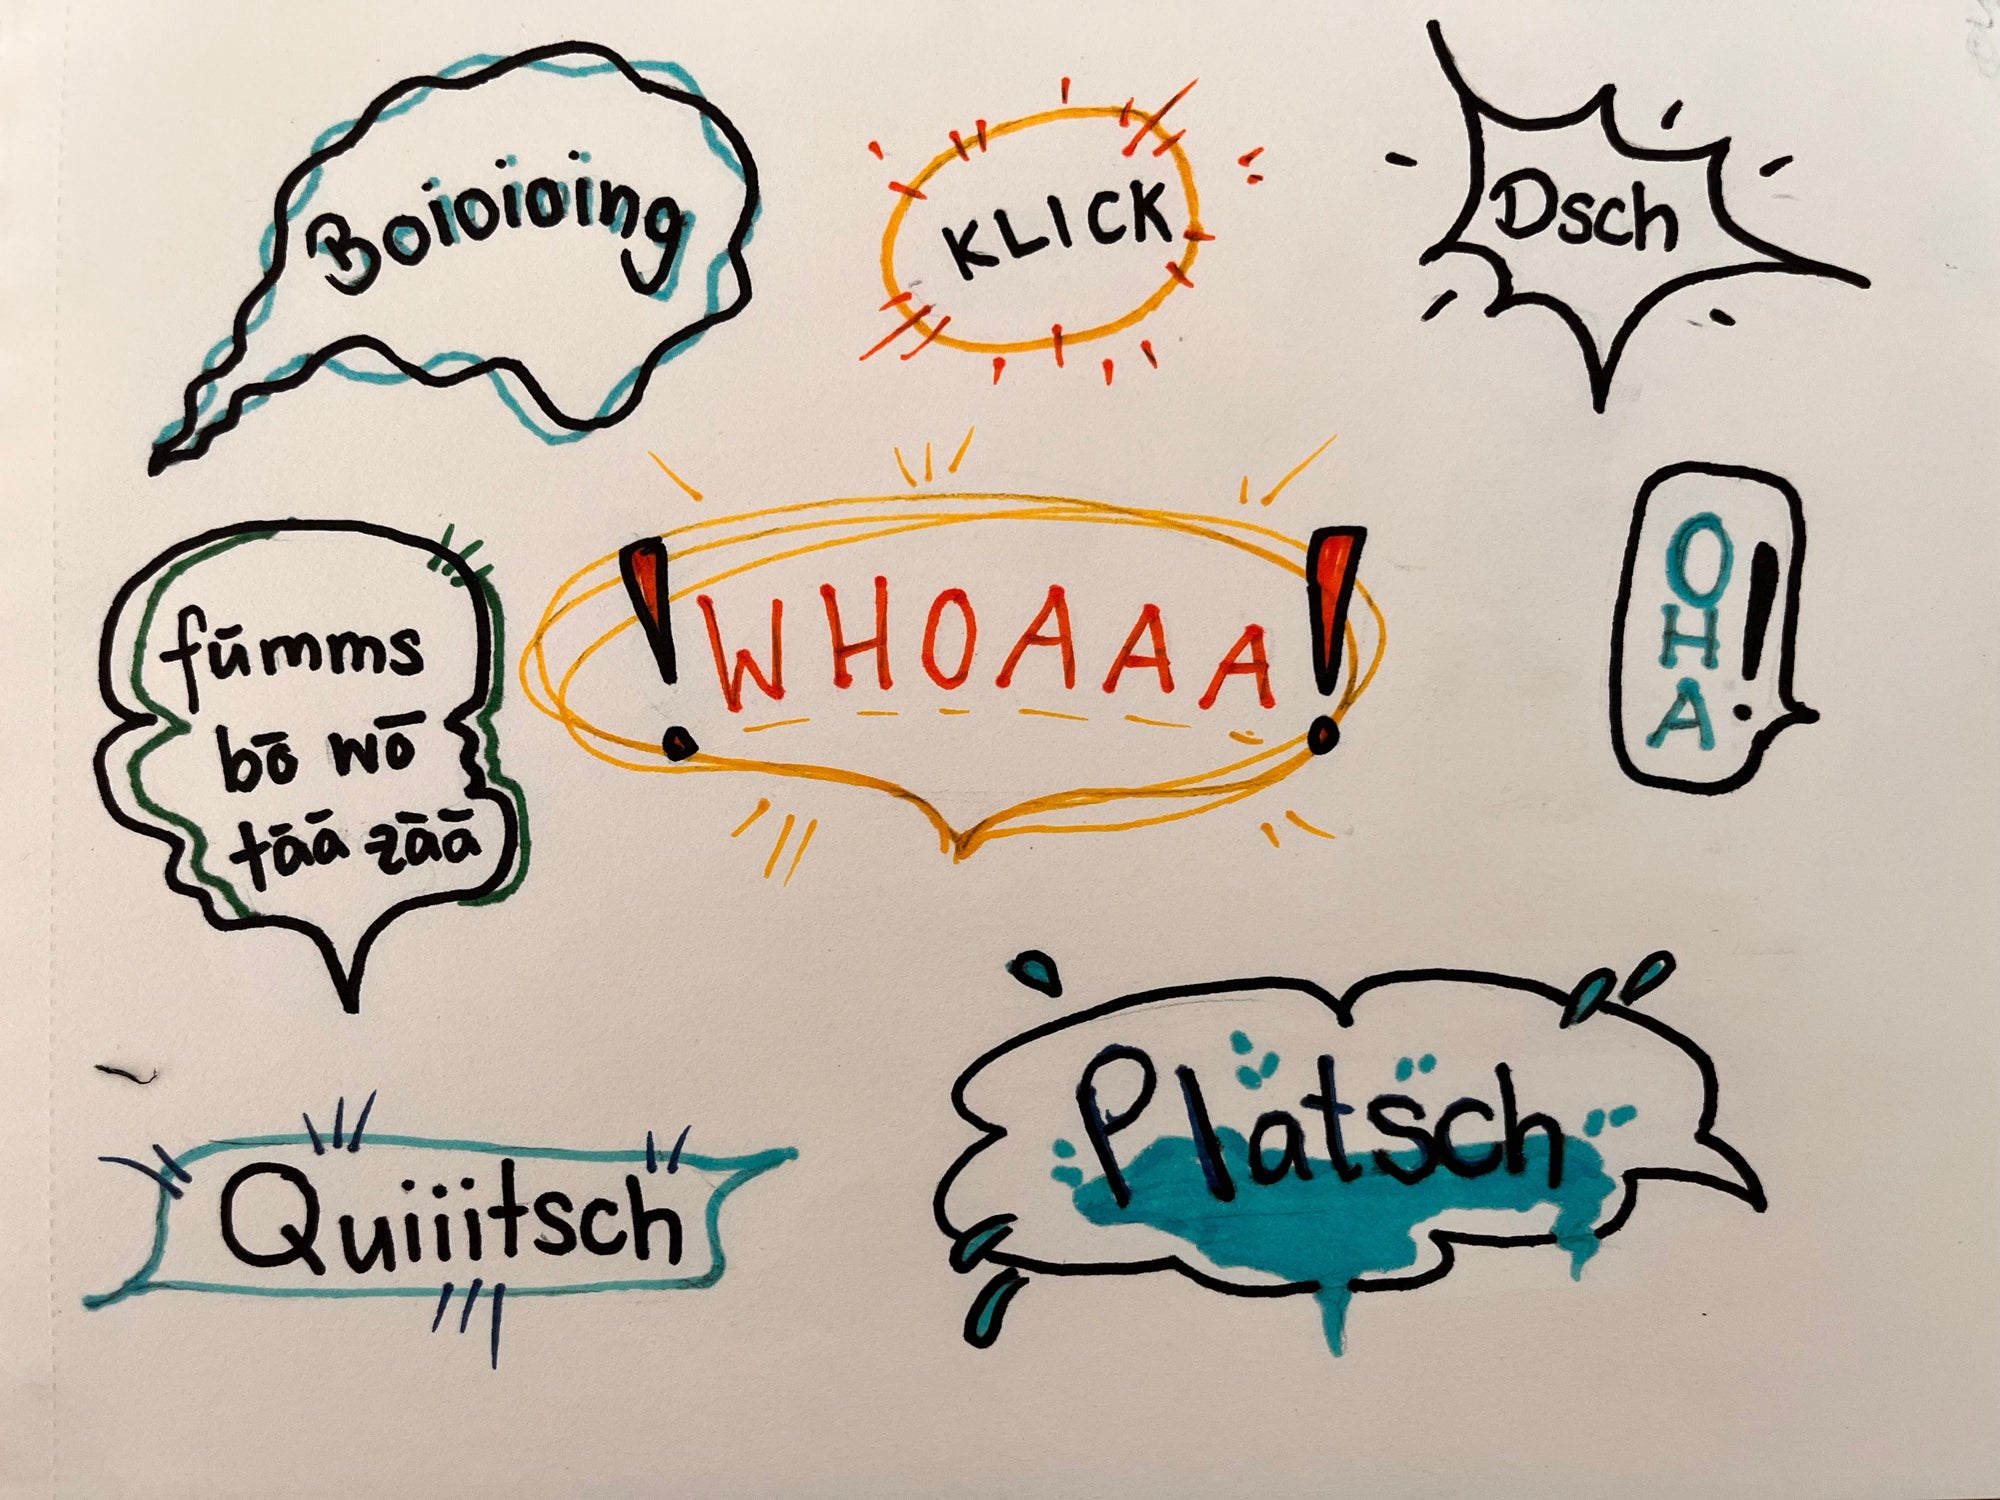 Boioioing
KLICK
Dsch
fūmms
bō wō
tāā zāā
! WHOAAA !
OHA!
Quiiitsch
Platsch